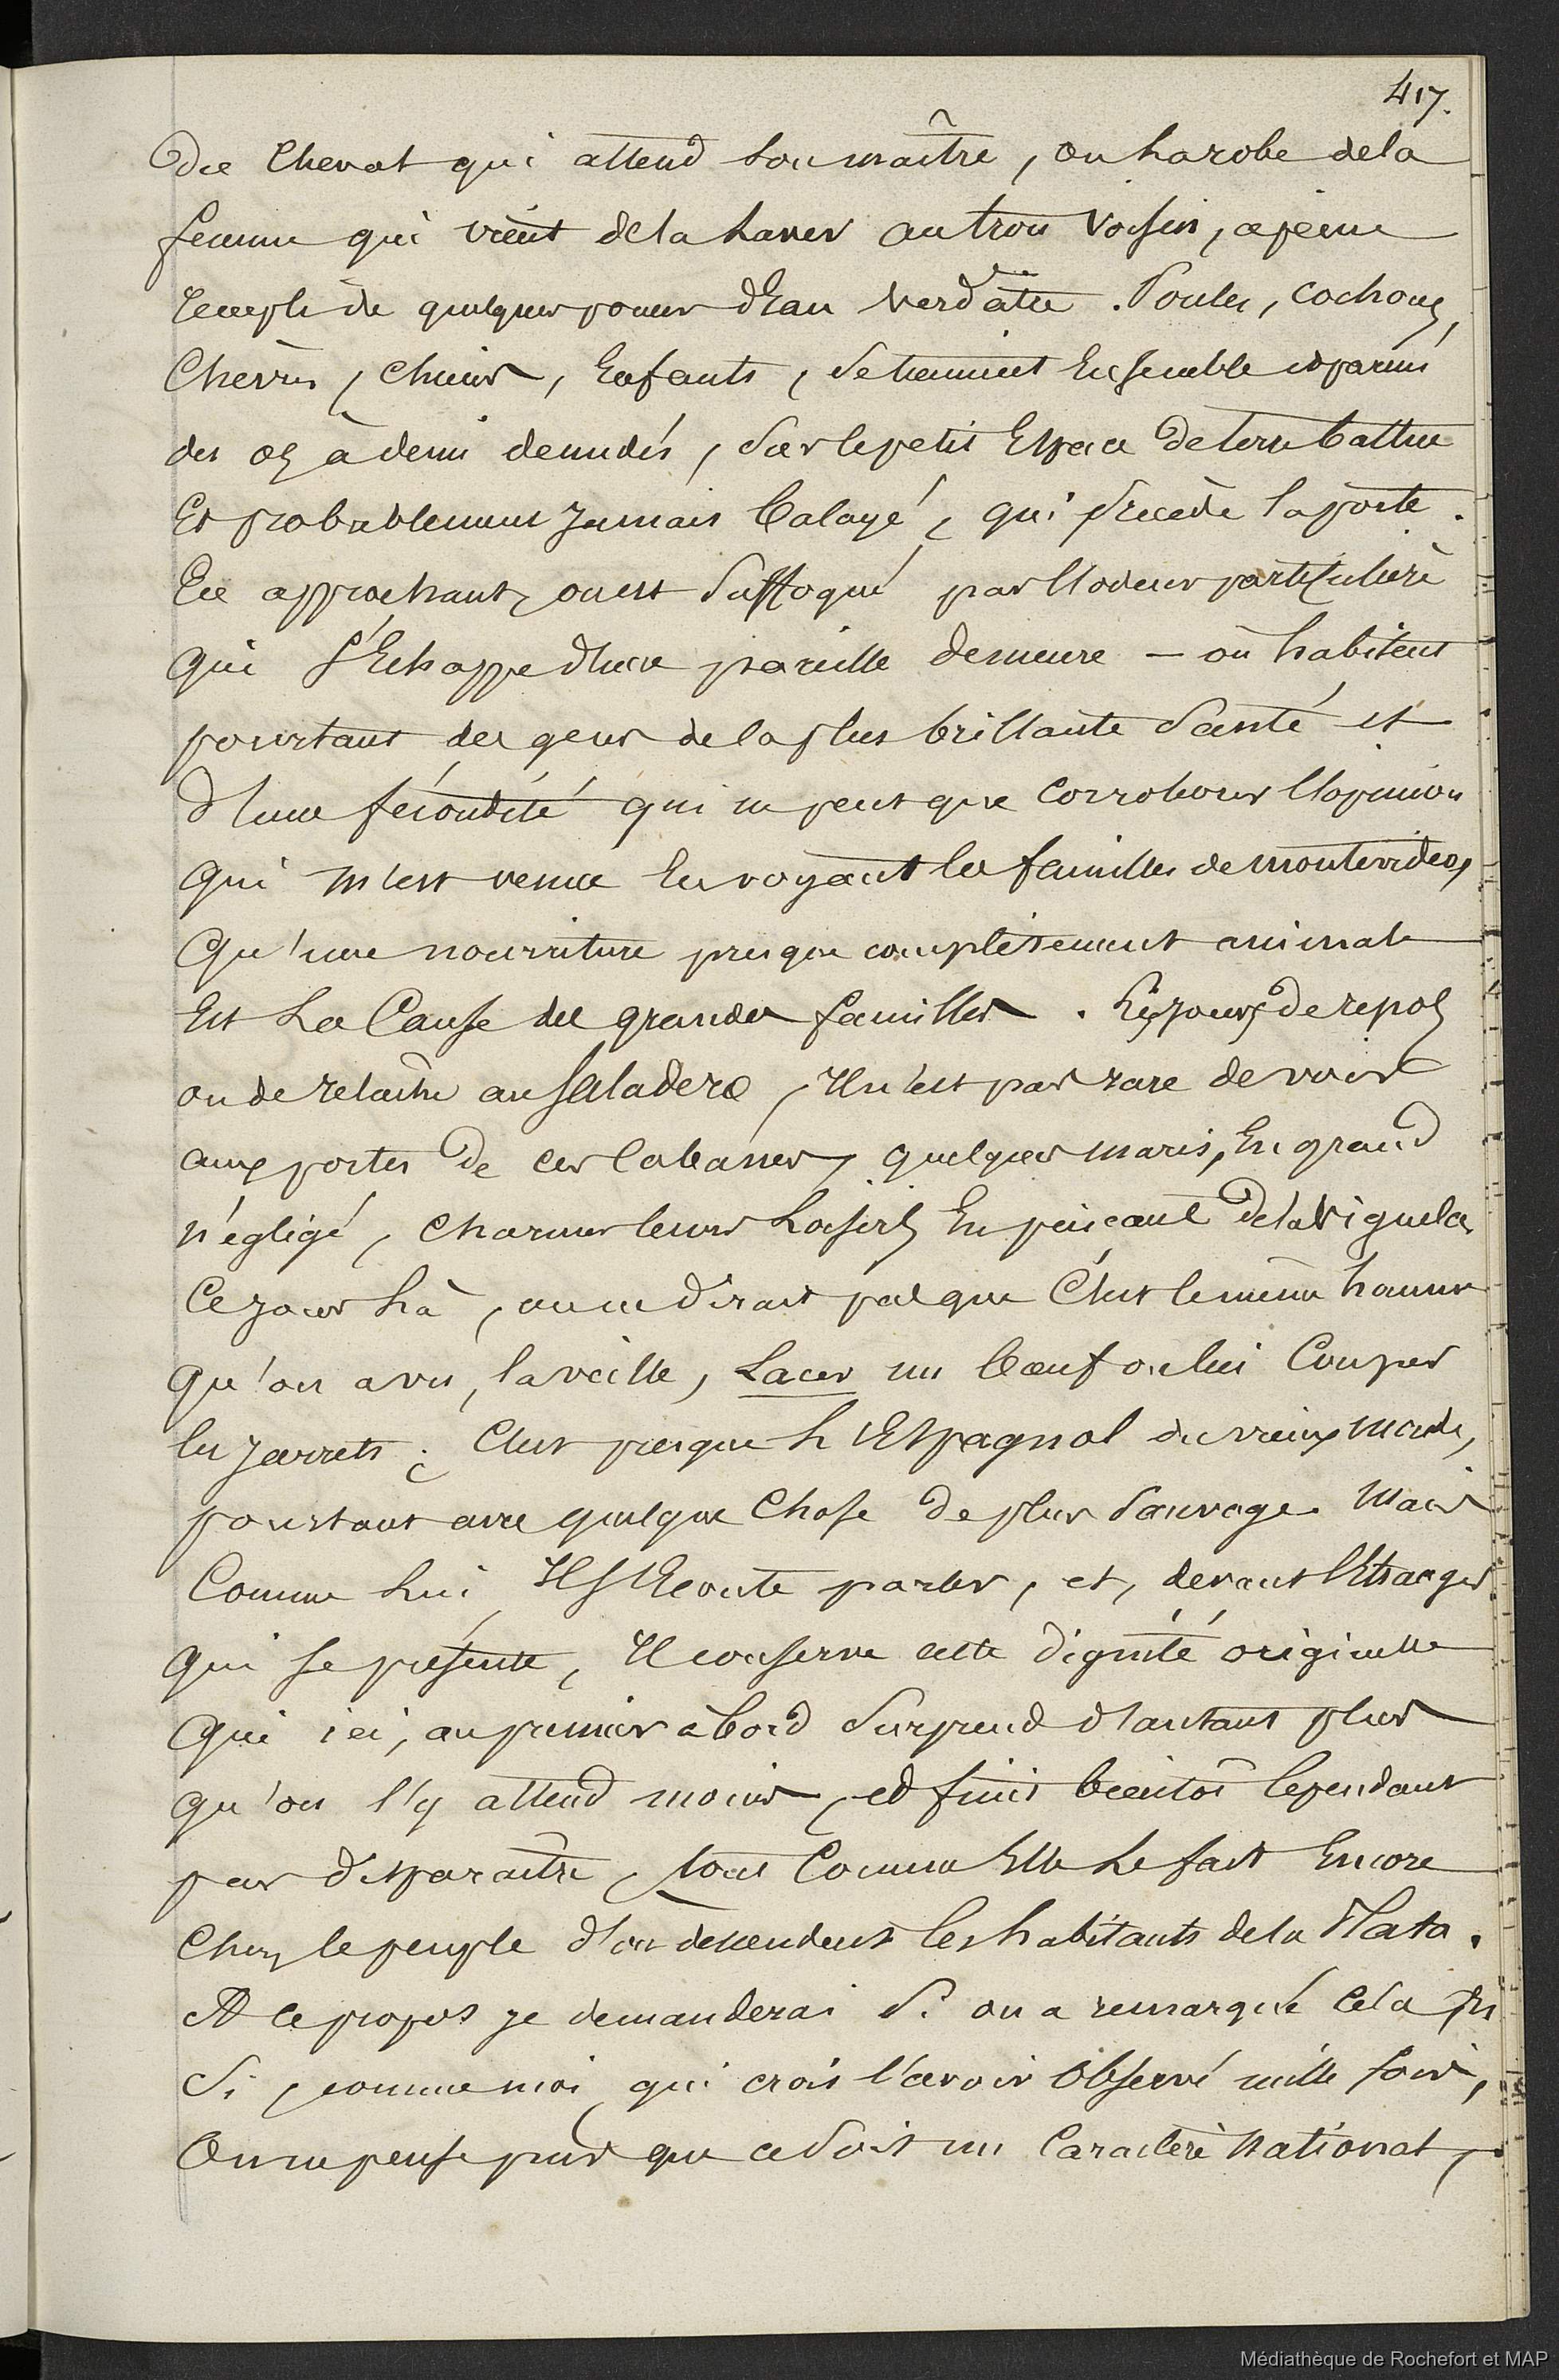 417.
du cheval qui attend son maître, ou la robe de la
femme qui vient de la laver au trou voisin, à peine
rempli de quelques pouces d'eau verdâtre. Poules, cochons,
chèvres, chiens, enfants, se tiennent ensemble et parmi
des os à demi dénudés, sur le petit espace de terre battue
et probablement jamais balayé, qui précède la porte.
En approchant, on est suffoqué par l'odeur particulière
qui s'échappe d'une pareille demeure — où habitent
pourtant des gens de la plus brillante santé et
d'une fécondité qui ne peut que corroborer l'opinion
qui m'est venue en voyant les familles de Montevideo,
qu'une nourriture presque complètement animale
est la cause des grandes familles. Les jours de repos
ou de relâche au saladero, il n'est pas rare de voir
aux portes de ces cabanes, quelques maris, en grand
négligé, charmer leurs loisirs en pinçant de la viguela.
Ce jour là, on ne dirait pas que c'est le même homme
qu'on a vu, la veille, lacer un bœuf ou lui couper
les jarrets; c'est presque l'Espagnol du vieux monde,
pourtant avec quelque chose de plus sauvage. Mais
comme lui, il s'écoute parler, et, devant l'étranger
qui se présente, il conserve cette dignité originelle
qui ici, au premier abord surprend d'autant plus
qu'on s'y attend moins, et finit bientôt cependant
par disparaître, tout comme elle le fait encore
chez le peuple d'où descendent les habitants de la Plata.
A ce propos je demanderai si on a remarqué cela et
si, comme moi, qui crois l'avoir observé mille fois,
on ne pense pas que ce soit un caractère national,
Médiathèque de Rochefort et MAP